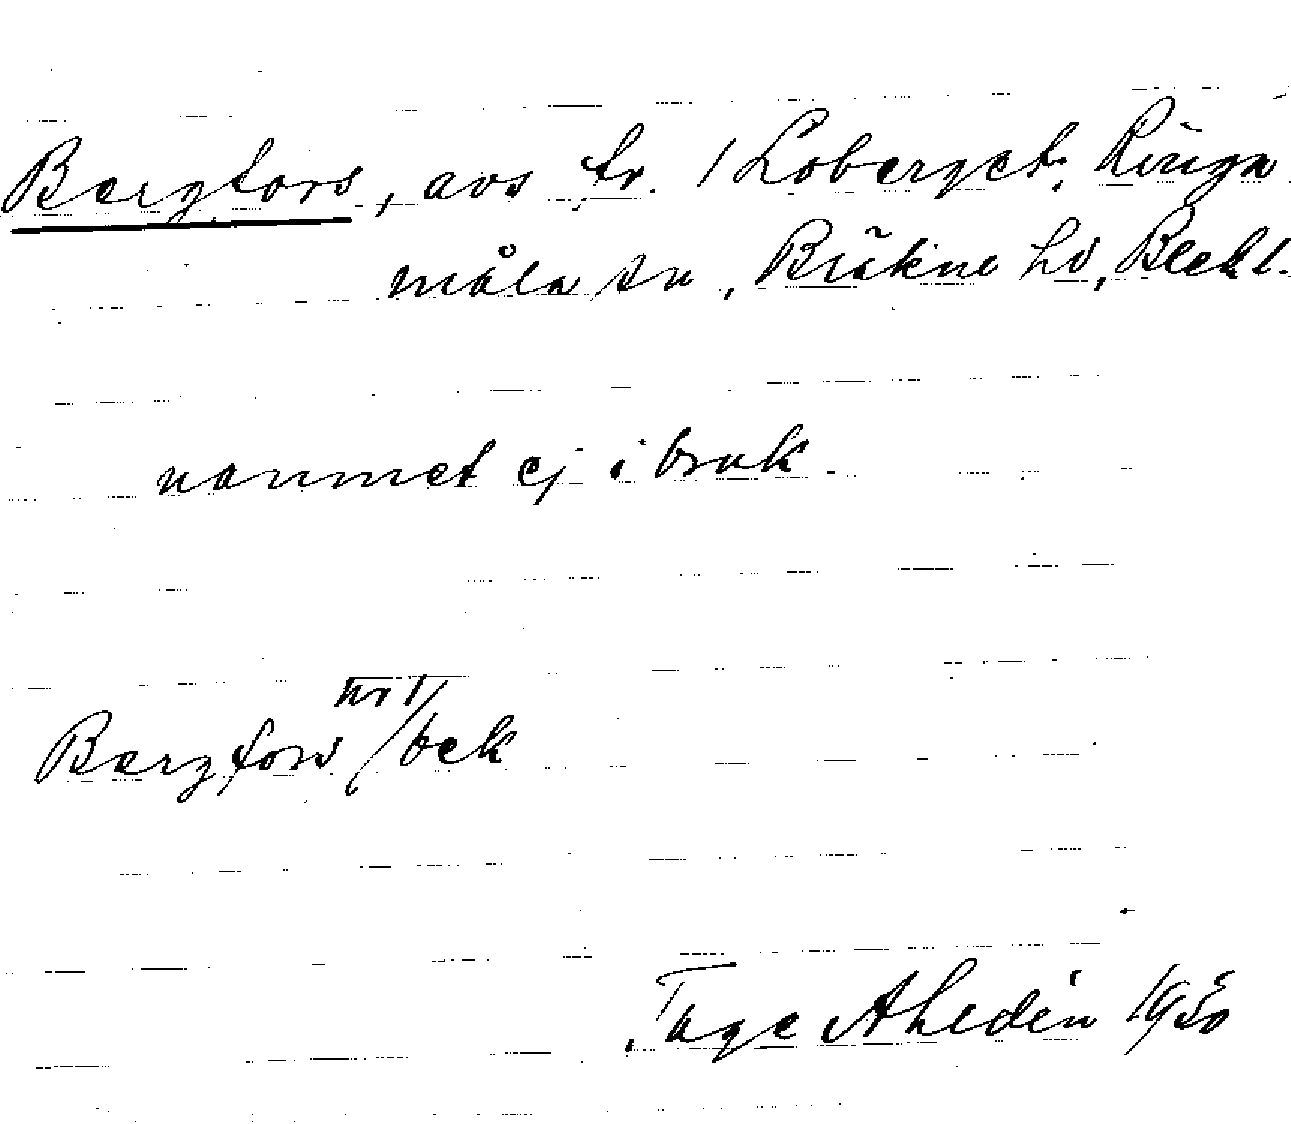 Bergfors, avs fr. 1 Loberget, Ringa
måla sn, Bräkne hd, Blekl.
namnet ej i bruk.
Bergfors nr 1/bek
Tage Ahldén 1950